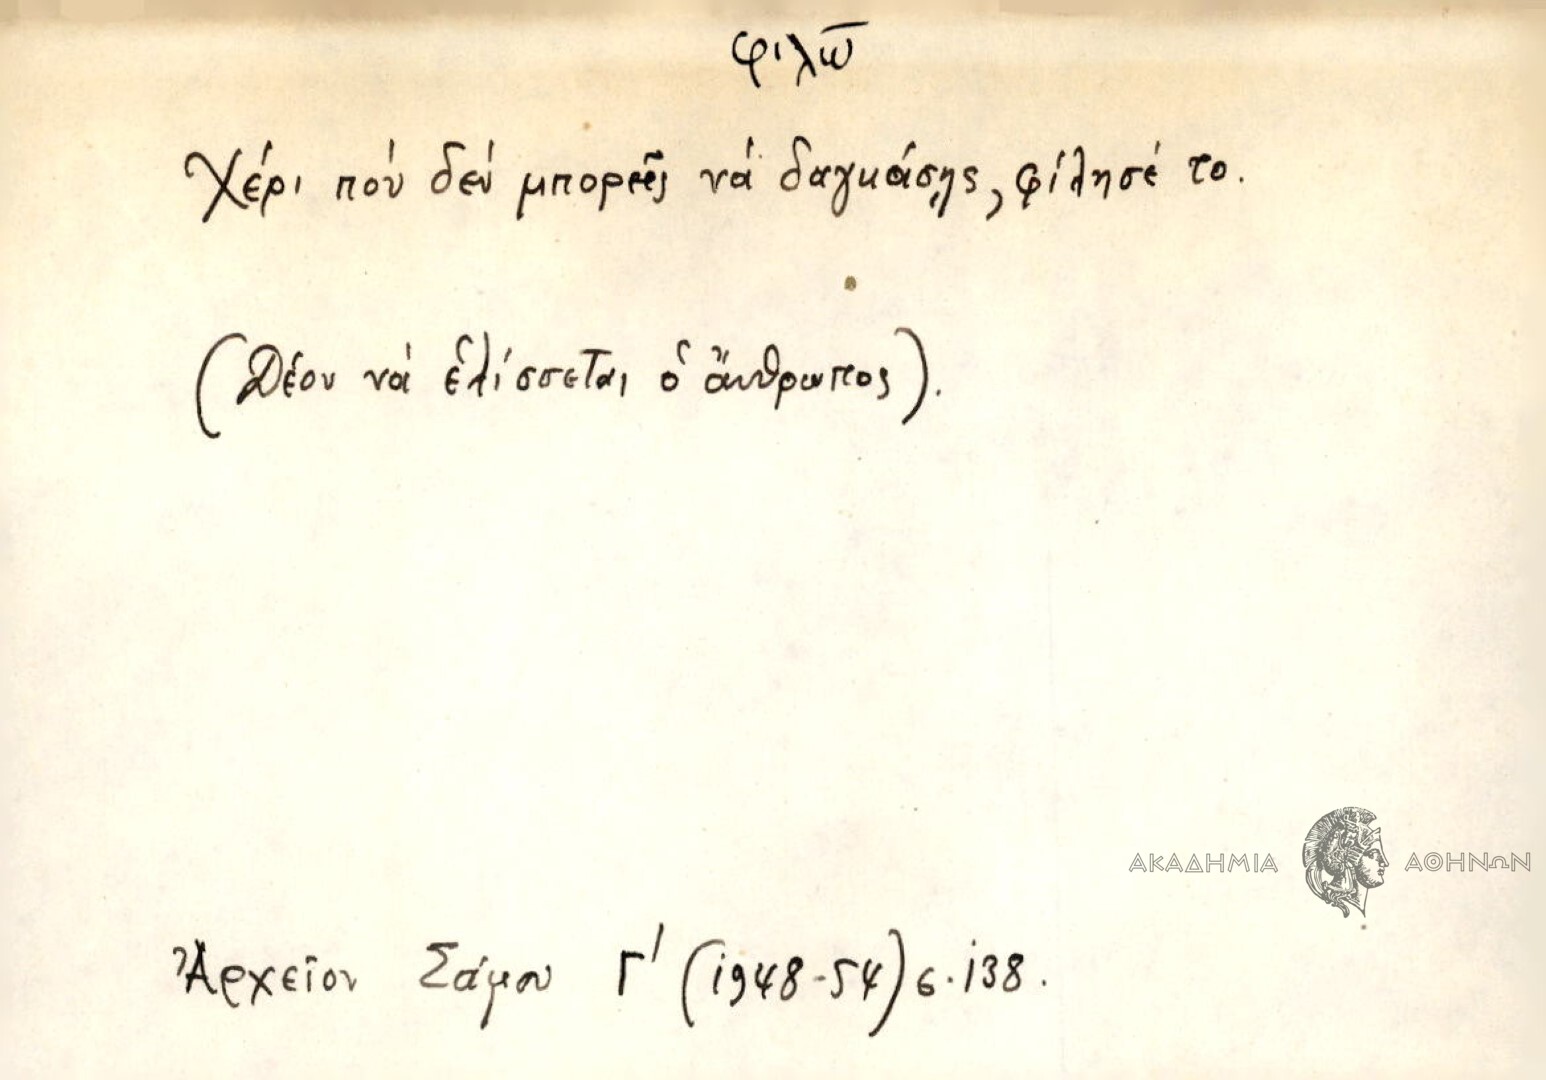 φιλῶ
Χέρι πού δέν μπορεῖς νά δαγκάσῃς, φίλησέ το.
(Δέον νά ἑλίσσεται ὁ ἄνθρωπος).
ΑΚΑΔΗΜΙΑ ΑΘΗΝΩΝ
Ἀρχεῖον Σάμου Γ' (1948-54) σ. 138.